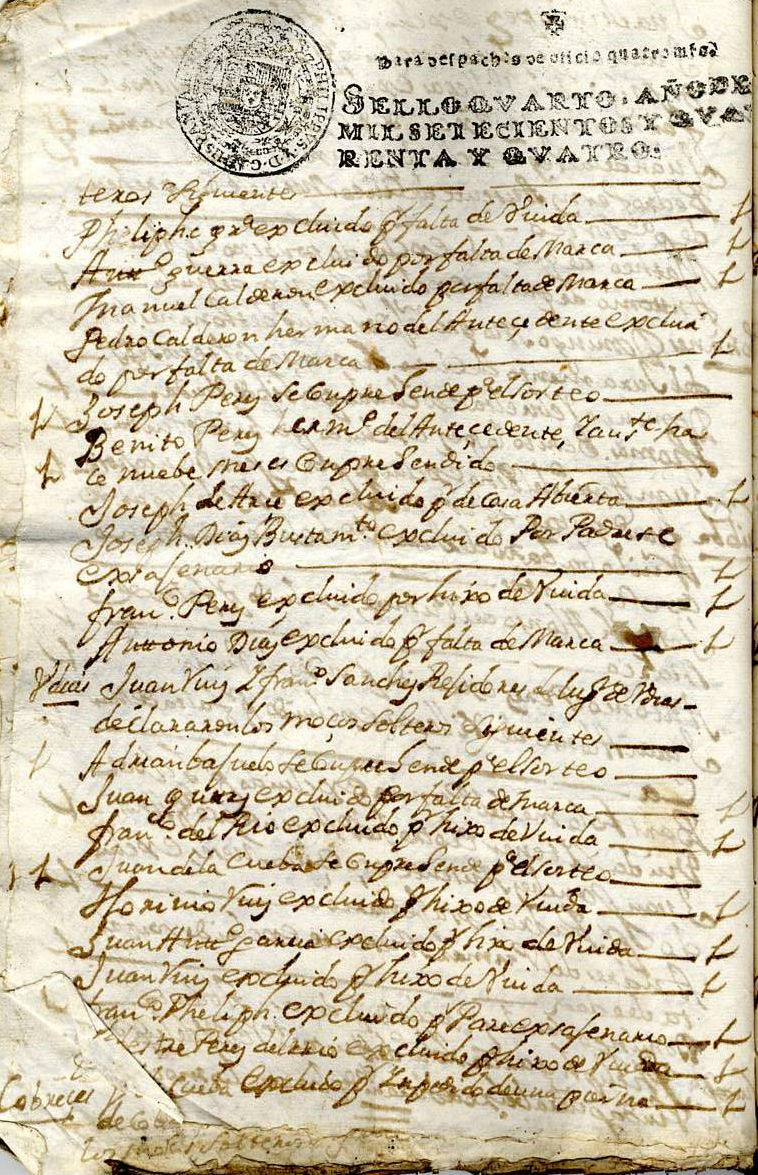 Para despachos de oficio quatro mrs.
SELLO QVARTO, AÑO DE
MIL SETECIENTOS Y QVA
RENTA Y QVATRO.
teros siguientes
Pheliphe excluido pr falta de Vuida
Antto guerra excluido por falta de Marca
Manuel Calderon excluido por falta de Marca
Pedro Calderon hermano del Anteçedente exclui
do por falta de Marca
Joseph Perez se Conpreende pa el Sorteo
Benito Perez hermo del Anteçedente,
ce nuebe meses Conpreendido
Joseph de Arce excluido pr de Casa Abierta
Joseph Diaz Bustamte excluido Por Padre se
exsajenario
franco Perez excluido por hixo de Vuida
Anttonio Diaz excluido pr falta de Marca
Juan Ruiz y franco Sanchez Rexidores del lugr de
declararon los moços solteros siguientes
Adrian basuelo se Conpreende pa el Sorteo
Juan excluido por falta de marca
franco del Rio excluido pr hixo de Vuida
Juan de la Cueba se Conpreende pa el Sorteo
excluido pr hixo de Vuida
Juan Antto garcia excluido pr hixo de Vuida
Juan Ruiz excluido pr hixo de Vuida
franco Pheliph excluido pr Pare exsajenario
Perez del rio excluido pr hixo de Vuida
Cueba excluido pr Inpedido de una pierna
Cobreces
de Co
los solteros